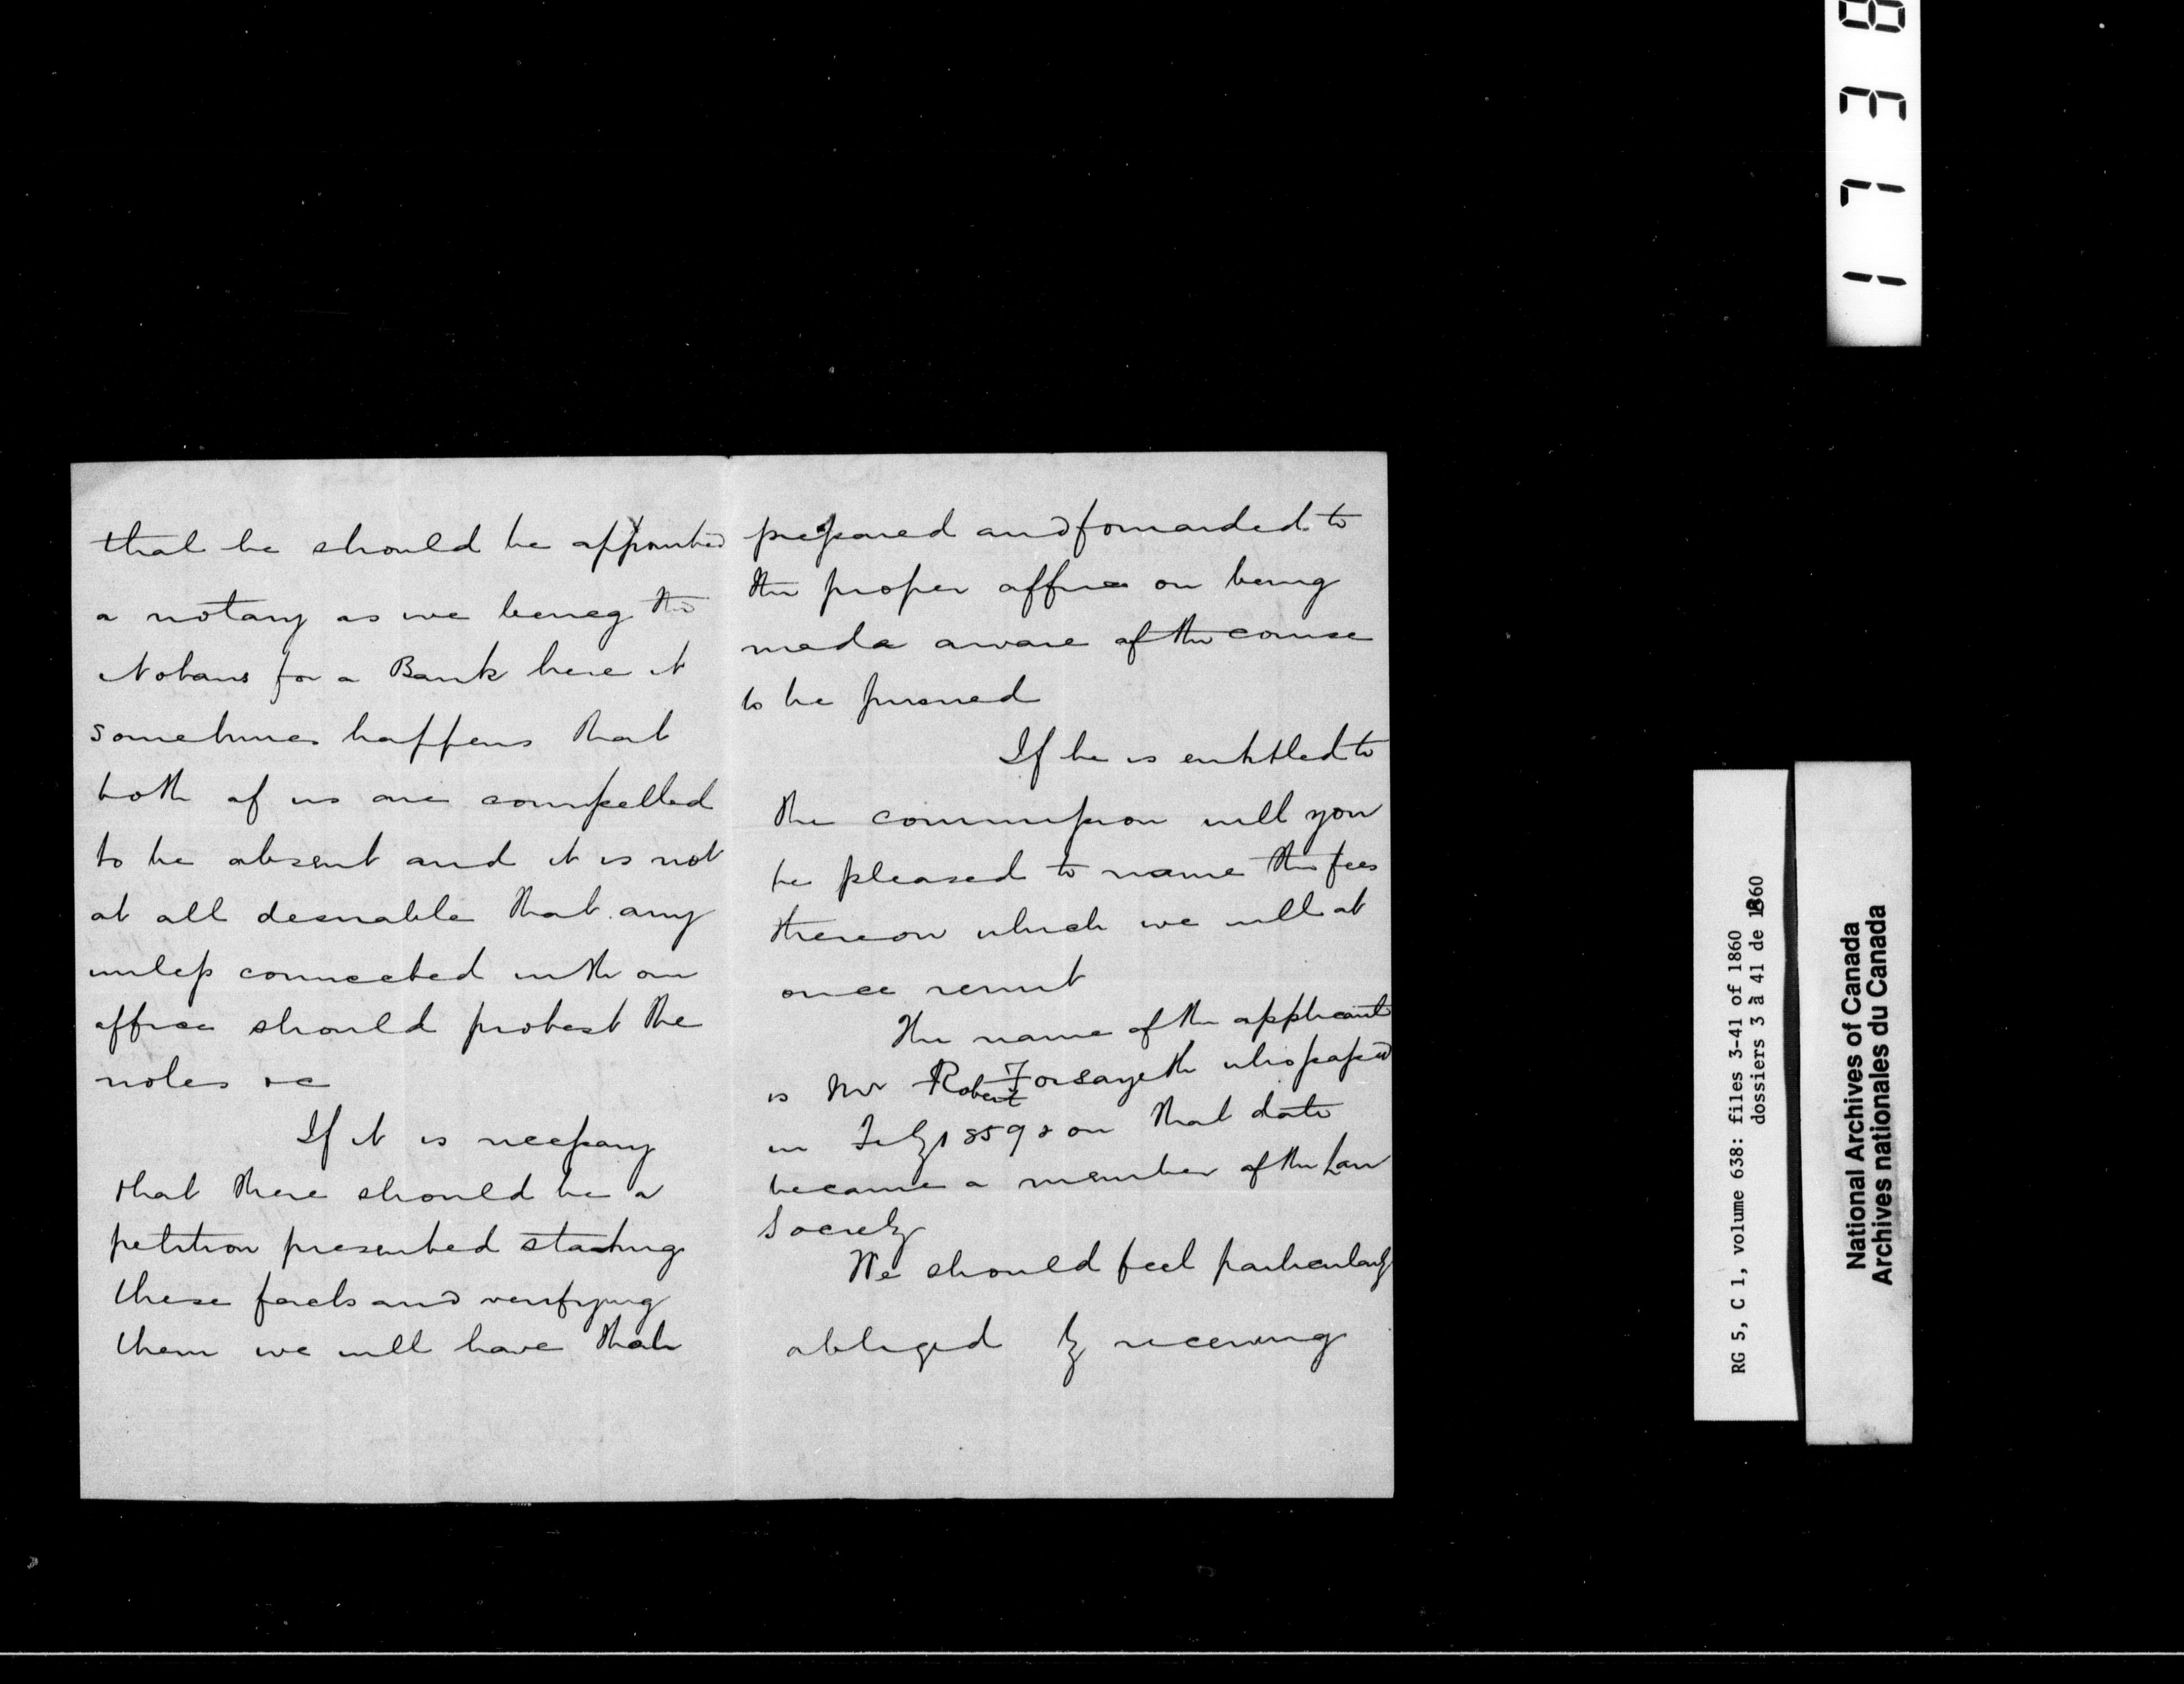 that he should be appointed
a notary as we being the
Notarys for a Bank here it
sometimes happens that
both of us are compelled
to be absent and it is not
at all desirable that any
unless connected with our
office should protest the
notes &c
If it is necessary
that there should be a
petition presented stating
these facts and verifying
them we will have that
prepared and forwarded to
the proper office on being
made aware of the course
to be pursued
If he is entitled to
the commission will you
be pleased to name the fees
thereon which we will at
once remit
The name of the applicant
is Mr Robert Forsayeth who passed
in July 1859 & on that date
became a member of the Law
Society
We should feel particularly
obliged by receiving
1738
RG 5, C 1, volume 638: files 3-41 of 1860
dossiers 3 à 41 de 1860
National Archives of Canada
Archives nationales du Canada